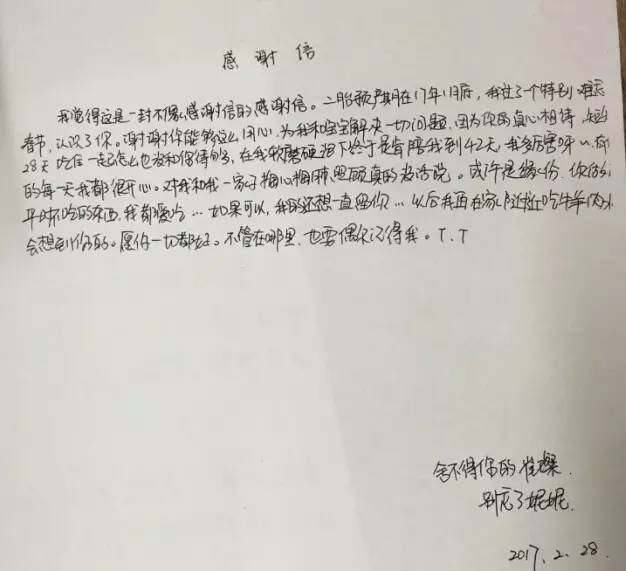 感谢信
我觉得这是一封不像感谢信的感谢信。二胎预产期在17年1月底，我过了个特别难忘
春节，认识了你。谢谢你能够这么用心，为我和宝宝解决一切问题，因为你的真心相待，短短
28天吃住一起怎么也没和你待够，在我软磨硬泡下终于是肯陪我到42天，我多厉害呀
的每一天我都很开心。对我和我一家子掏心掏肺照顾真的没话说。或许是缘份，你做的
平时不吃的东西，我都爱吃…如果可以，我还想一直留你…以后我再在家附近吃牛羊肉
会想到你的。愿你一切都好。不管在哪里，也要偶尔记得我。T.T
舍不得你的崔璨
别忘了妮妮
2017.2.28